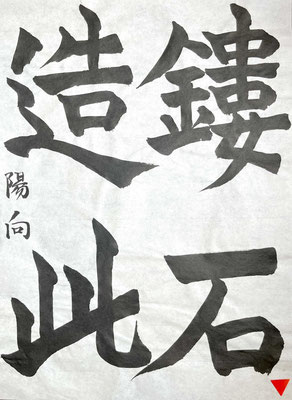 鏤石
造此
陽向